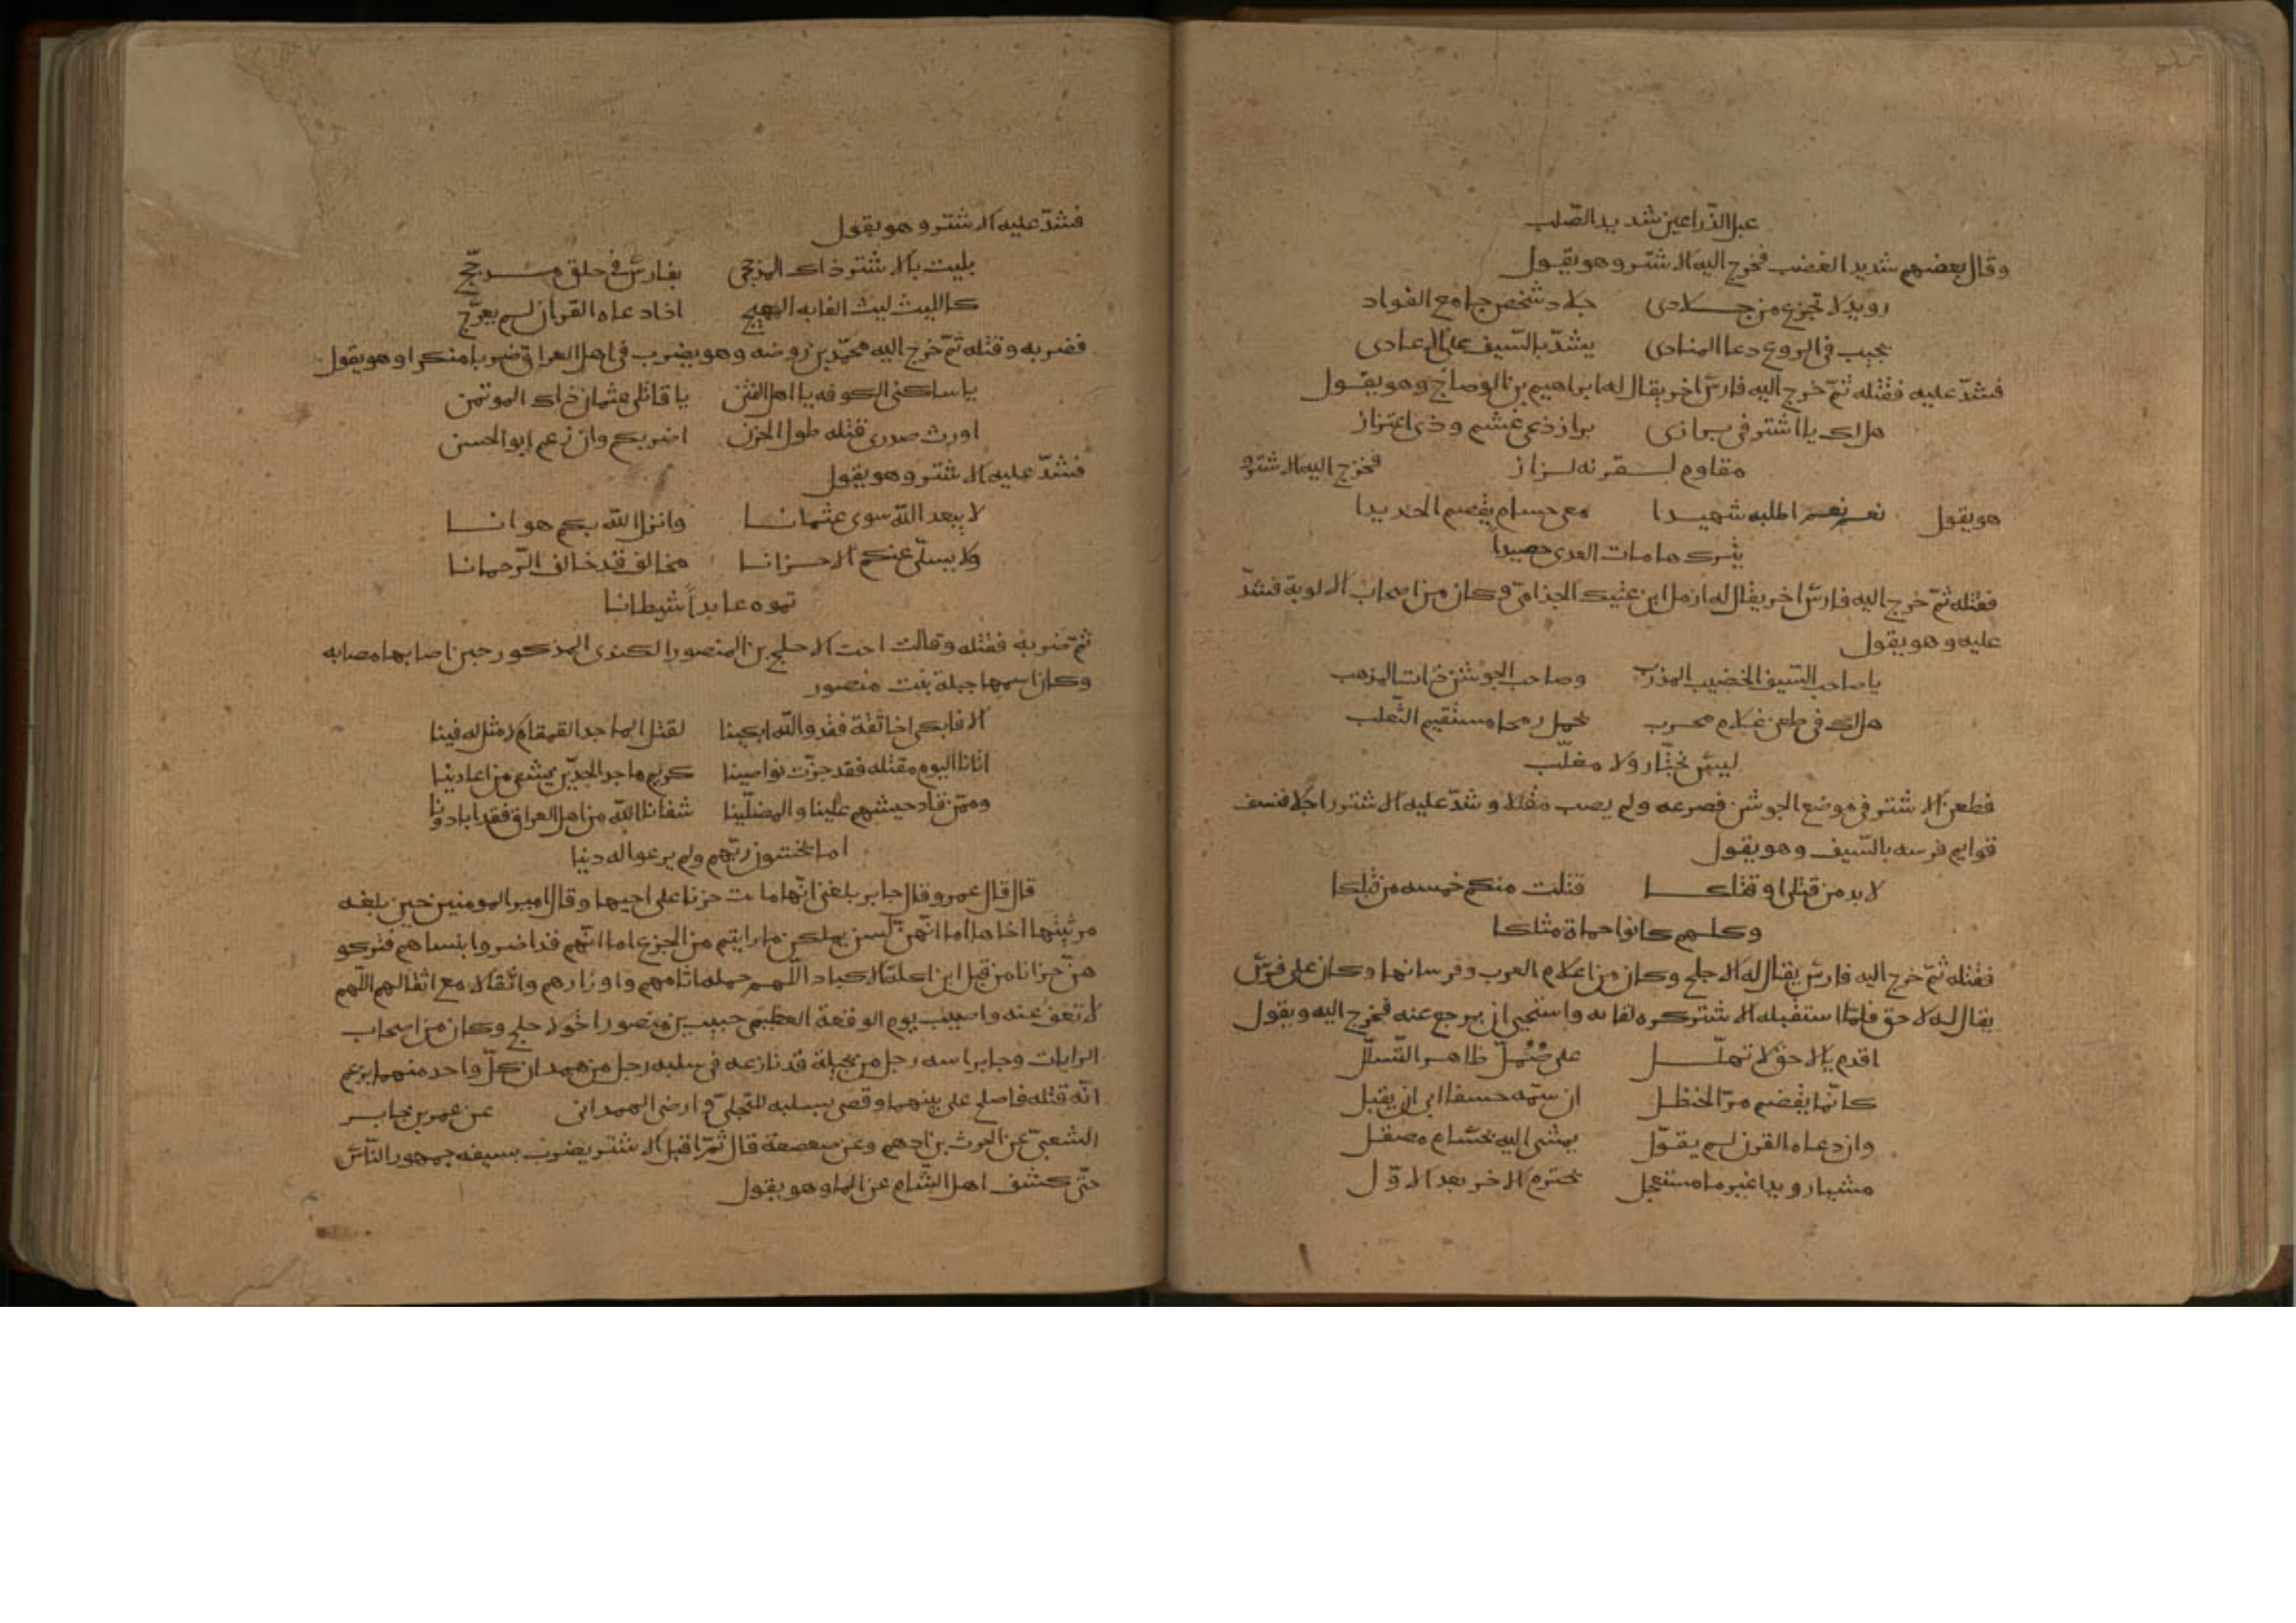 عبل الذّراعين شديد الصّلب
وقال بعضهم شديد الغضب فخرج اليه الاشتر وهو يقول
رويد لا تجزع من جلادى جلاد شخص جامع الفواد
يجيب فى الروع دعا المنادى يشدّ بالسّيف على الاعادى
فشدّ عليه فقتله ثمّ خرج اليه فارس اخر يقال له ابراهيم بن الوضاح وهو يقول
هل لك يا اشتر فى برازى براز ذى غشم وذى اعتزاز
مقاوم لقرنه لزاز فخرج اليه الاشتر و
هو يقول نعم نعم اطلبه شهيدا معى حسام يقصم الحديدا
يترك هامات العدى حصيداً
فقتله ثمّ خرج اليه فارس اخر يقال له ازمل ابن عتيك الجذامىّ وكان من اصحاب الالوية فشدّ
عليه وهو يقول
يا صاحب السّيف الخضيب المذرب وصاحب الجوشن ذات المذهب
هل لك فى طعن غلام محرب يحمل رمحا مستقيم الثّعلب
ليس بحيّار ولا مغلّب
فطعن الاشتر فى موضع الجوشن فصرعه ولم يصب مقتلا وشدّ عليه الاشتر راجلا فنسف
قوايم فرسه بالسّيف وهو يقول
لا بد من قتلى او قتلكا قتلت منكم خمسه من قبلكا
وكلهم كانوا حماة مثلكا
فقتله ثمّ خرج اليه فارس يقال له الاجلح وكان من اعلام العرب وفرسانها وكان على فرس
يقال له لاحق فلمّا استقبله الاشتر كره لقاه واستحيى ان يرجع عنه فخرج اليه ويقول
اقدم بالاحق لا تهلّل على صُمُلّ ظاهر التّسلّل
كانّما يقضم مرّ الحنظل ان سمّه خسفا ابى ان يقبل
وان دعاه القرن لم يقوّل يمشى اليه بحسام مصقل
مشيا رويدا غير ما مستعجل يخترم الاخر بعد الاوّل
فشدّ عليه الاشتر وهو يقول
بليت بالاشتر ذاك المذحجى بفارس فى حلق مدجّج
كالليث ليث الغابه المهيج اذا دعاه القرن لم يعرّج
فضربه وقتله ثمّ خرج اليه محمّد بن روضه وهو يضرب فى اهل العراق ضربا منكرا وهو يقول
يا ساكنى الكوفه يا اهل الفتن يا قاتلى عثمان ذاك الموتمن
اورث صدرى قتله طول الحزن اضربكم وان زعم ابو الحسن
فشدّ عليه الاشتر وهو يقول
لا يبعد اللّه سوى عثمانا وانزل اللّه بكم هوانا
ولا يسلّى عنكم الاحزانا مخالف قد خالف الرّحمانا
تموه عابداً شيطانا
ثمّ ضربه فقتله وقالت اخت الاجلح بن المنصور الكندى المذكور حين اصابها مصابه
وكان اسمها جبلة بنت منصور
الا فابكى اخا ثقة فقد واللّه ابكينا لقتل الماجد القمقام لا مثل له فينا
اتانا اليوم مقتله فقد جزّت نواصينا كريم ماجد الجدّين يشفى من اعادينا
وممّن قاد جيشهم علينا والمضلّينا شفانا اللّه من اهل العراق فقد ابادونا
اما يخشون ربّهم ولم يرعوا له دينا
قال قال عمرو قال جابر بلغنى انّها ماتت حزنا على اخيها وقال امير المومنين حين بلغه
مرثيتها اخاها اما انّهنّ ليس يملكن ما رايتم من الجزع اما انّهم قد اضروا بنساهم فتركو
هنّ حزانا من قبل ابن اكلة الاكباد اللّهم حمله اثامهم واوزارهم واثقالا مع اثقالهم اللّهم
لا تعف عنه واصيب يوم الوقعة العظيمى حبيب بن منصور اخو الاجلح وكان من اصحاب
الرايات وجا براسه رجل من بجيلة قد نازعه فى سلبه رجل من همدان كلّ واحد منهما يزعم
انّه قتله فاصلح على بينهما وقضى بسلبه للبجلىّ وارضى الهمدانى عن عمر بن جابر
الشعبىّ عن الحرث بن ادهم وعن صعصعة قال ثمّ اقبل الاشتر يضرب بسيفه جمهور النّاس
حتّى كشف اهل الشّام عن الما وهو يقول